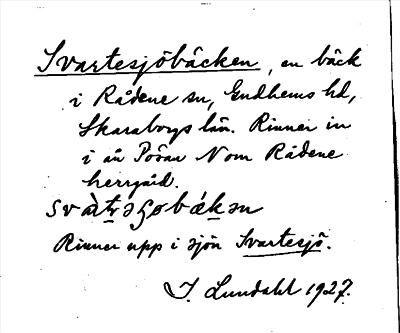 Svartesjöbäcken, en bäck
i Rådene sn, Gudhems hd,
Skaraborgs län. Rinner in
i ån Pösan N om Rådene
herrgård.
Rinner upp i sjön Svartesjö.
I. Lundahl 1927.